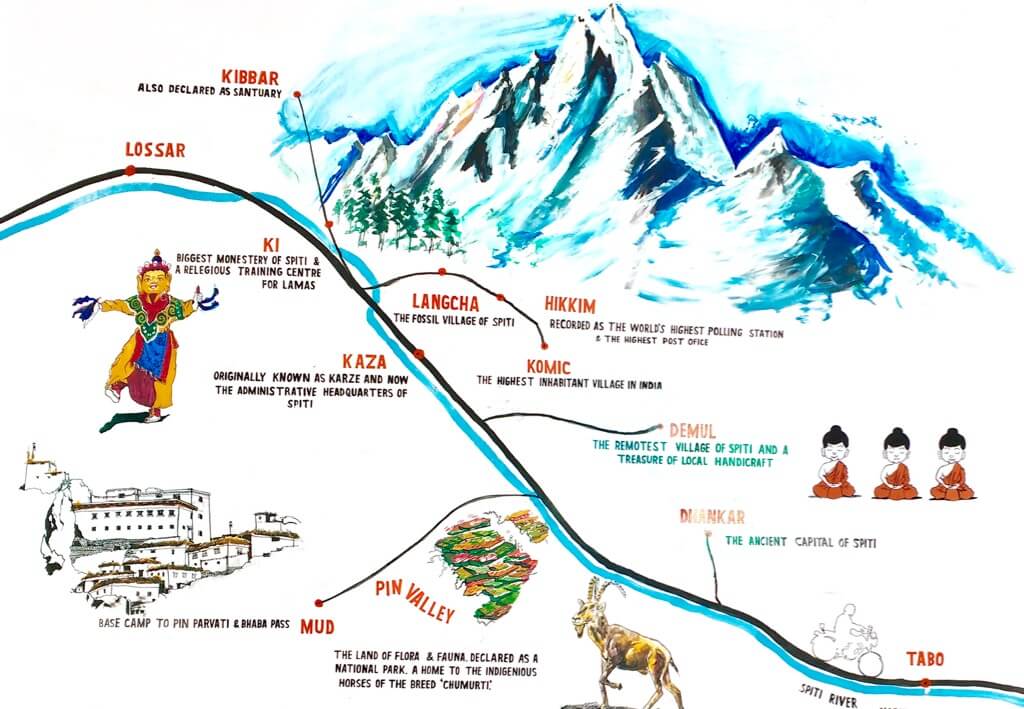 KIBBAR
ALSO DECLARED AS SANTUARY
LOSSAR
KI
BIGGEST MONESTERY OF SPITI &
A RELEGIOUS TRAINING CENTRE
FOR LAMAS
LANGCHA
THE FOSSIL VILLAGE OF SPITI
HIKKIM
RECORDED AS THE WORLD'S HIGHEST POLLING STATION
& THE HIGHEST POST OFICE
KAZA
ORIGINALLY KNOWN AS KARZE AND NOW
THE ADMINISTRATIVE HEADQUARTERS OF
SPITI
KOMIC
THE HIGHEST INHABITANT VILLAGE IN INDIA
DEMUL
THE REMOTEST VILLAGE OF SPITI AND A
TREASURE OF LOCAL HANDICRAFT
DHANKAR
THE ANCIENT CAPITAL OF SPITI
PIN VALLEY
MUD
BASE CAMP TO PIN PARVATI & BHABA PASS
THE LAND OF FLORA & FAUNA. DECLARED AS A
NATIONAL PARK. A HOME TO THE INDIGENIOUS
HORSES OF THE BREED 'CHUMURTI.'
TABO
SPITI RIVER